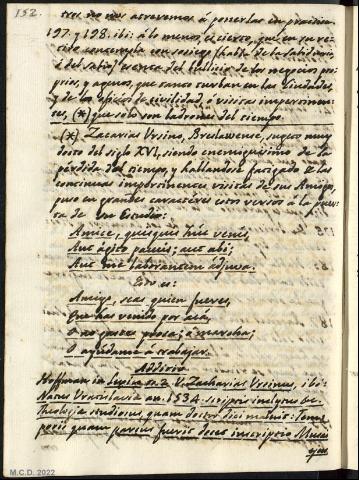 152.
tros no nos atrevemos á ponerlas en practica.
197. y 198. ibi: á lo menos, es cierto, que en su re-
tiro contempla con sosiego (habla de la Sabiduria,
ó del sabio) exenta del bullicio de los negocios pro-
prios, y agenos, que tanto turban en las Ciudades,
y de los oficios de civilidad, ó visitas impertinen-
tes, (*) que solo son ladrones del tiempo.
(*) Zacarias Ursino, Breslawense, sugeto muy
docto del siglo XVI, siendo enemiguisimo de la
pérdida del tiempo, y hallandose fatigado de las
continuas impertinentes visitas de sus Amigos,
puso en grandes caractéres estos versos á la puer-
ta de su Estudio:
Amice, quisquis huc venis,
Aut agito paucis; aut abi;
Aut me laborantem adjuva.
Esto es:
Amigo, seas quien fueres,
Que has venido por acá,
O no gastes prosa; ó marcha;
O ayudame á trabajar.
Additio
Hoffman in Lexico to. 2. V. Zacharias Ursinus, ibi:
Natus Vratislavia an. 1534. scriptis inclytus
Theologiæ studiosus, quam doctor dici maluit. Tem-
poris quam parcus fuerit docet inscriptio Musei
ejus
M.C.D. 2022